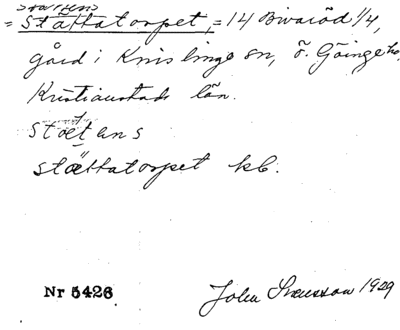 = Stättatorpet, = 14 Bivaröd 1/4,
gård i Knislinge sn, ö. Göinge hd,
Kristianstads län.
stä́t ans
stättatorpet kb.
Nr 5426 John Svensson 1929